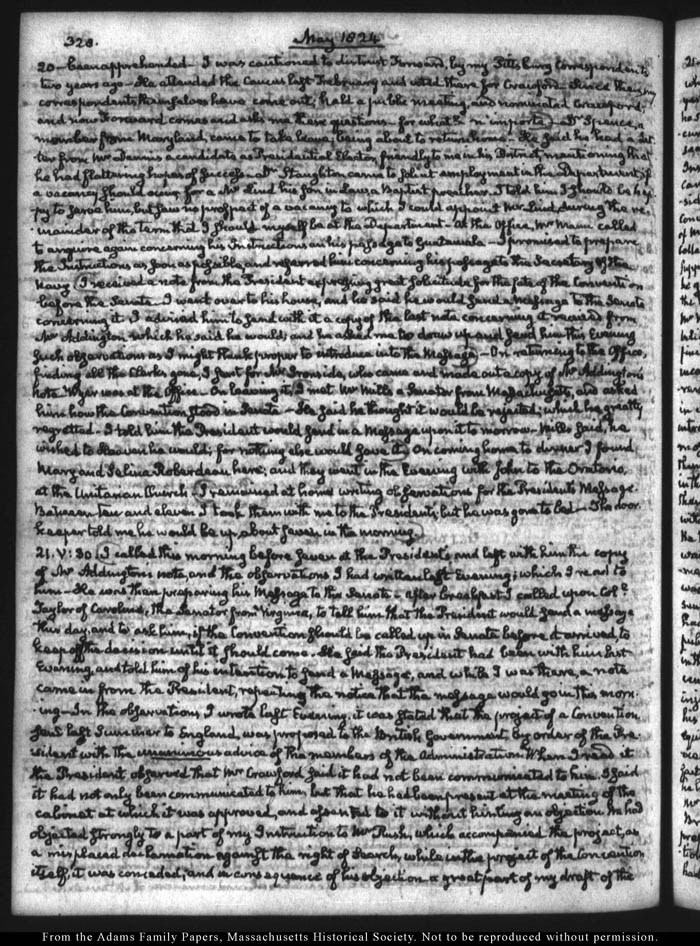 328.
May 1824
20 - been apprehended. I was cautioned to distrust Forward, by my Pittsburg Correspondents
two years ago - He attended the Caucus last February and voted there for Crawford. Since then my
correspondents themselves have come out; held a public meeting, and nominated Crawford.
and now Forward comes and asks me these questions - for what? n'importe. Dr Spence, a
member from Maryland, came to take leave; being about to return home. He said he had a Let-
ter from Mr Dennis a candidate as Presidential Elector friendly to me in his District, mentioning that
he had flattering hopes of success. Dr Staughton came to solicit employment in the Department if
a vacancy should occur, for a Mr Lind his son in Law, a Baptist preacher. I told him I should be hap-
py to serve him, but saw no prospect of a vacancy to which I could appoint Mr Lind, during the re-
mainder of the term that I should myself be at the Department - At the Office, Mr Mann called
to enquire again concerning his Instructions and his passage to Guatemala - I promised to prepare
the Instructions as soon as possible, and referred him concerning his passage to the Secretary of the
Navy. I received a note from the President expressing great solicitude for the fate of the Convention
before the Senate. I went over to his house, and he said he would send a Message to the Senate
concerning it. I advised him to send with it a copy of the last note concerning it received from
Mr Addington, which he said he would; and he asked me to draw up and send him this Evening
such observations as I might think proper to introduce into the Message - On returning to the Office,
finding all the Clerks gone, I sent for Mr Ironside, who came and made out a copy of Mr Addington's
note. Wyer was at the Office - On leaving it, I met Mr Mills a Senator from Massachusetts, and asked
him how the Convention stood in Senate - He said he thought it would be rejected; which he greatly
regretted - I told him the President would send in a Message upon it to morrow. Mills said, he
wished to Heaven he would; for nothing else would save it. On coming home to dinner I found
Mary and Selina Roberdeau here; and they went in the Evening with John to the Oratorio,
at the Unitarian Church. I remained at home writing observations for the President's Message.
Between ten and eleven I took them with me to the President's; but he was gone to bed - The door
keeper told me he would be up, about seven in the morning.
21. V: 30. I called this morning before seven at the President's and left with him the copy
of Mr Addington's note, and the observations I had written last Evening; which I read to
him - He was then preparing his Message to the Senate - after breakfast I called upon Col.o
Taylor of Caroline, the Senator from Virginia, to tell him that the President would send a message
this day, and to ask him, if the Convention should be called up in Senate before it arrived, to
keep off the decision until it should come. He said the President had been with him last
Evening, and told him of his intention to send a Message, and while I was there, a note
came in from the President, repeating the notice that the message would go in this morn-
ing - In the observations I wrote last Evening, it was stated that the project of a Convention,
sent last Summer to England, was proposed to the British Government, by order of the Pre-
sident with the unanimous advice of the members of the Administration. When I read it
the President observed that Mr Crawford said it had not been communicated to him. I said
it had not only been communicated to him, but that he had been present at the meeting of the
cabinet at which it was approved, and assented to it without hinting an objection. He had
objected strongly to a part of my Instruction to Mr Rush, which accompanied the project, as
a misplaced declamation against the right of search, while in the project of the Convention
itself, it was conceded; and in consequence of his objection a great part of my draft of the
From the Adams Family Papers, Massachusetts Historical Society. Not to be reproduced without permission.